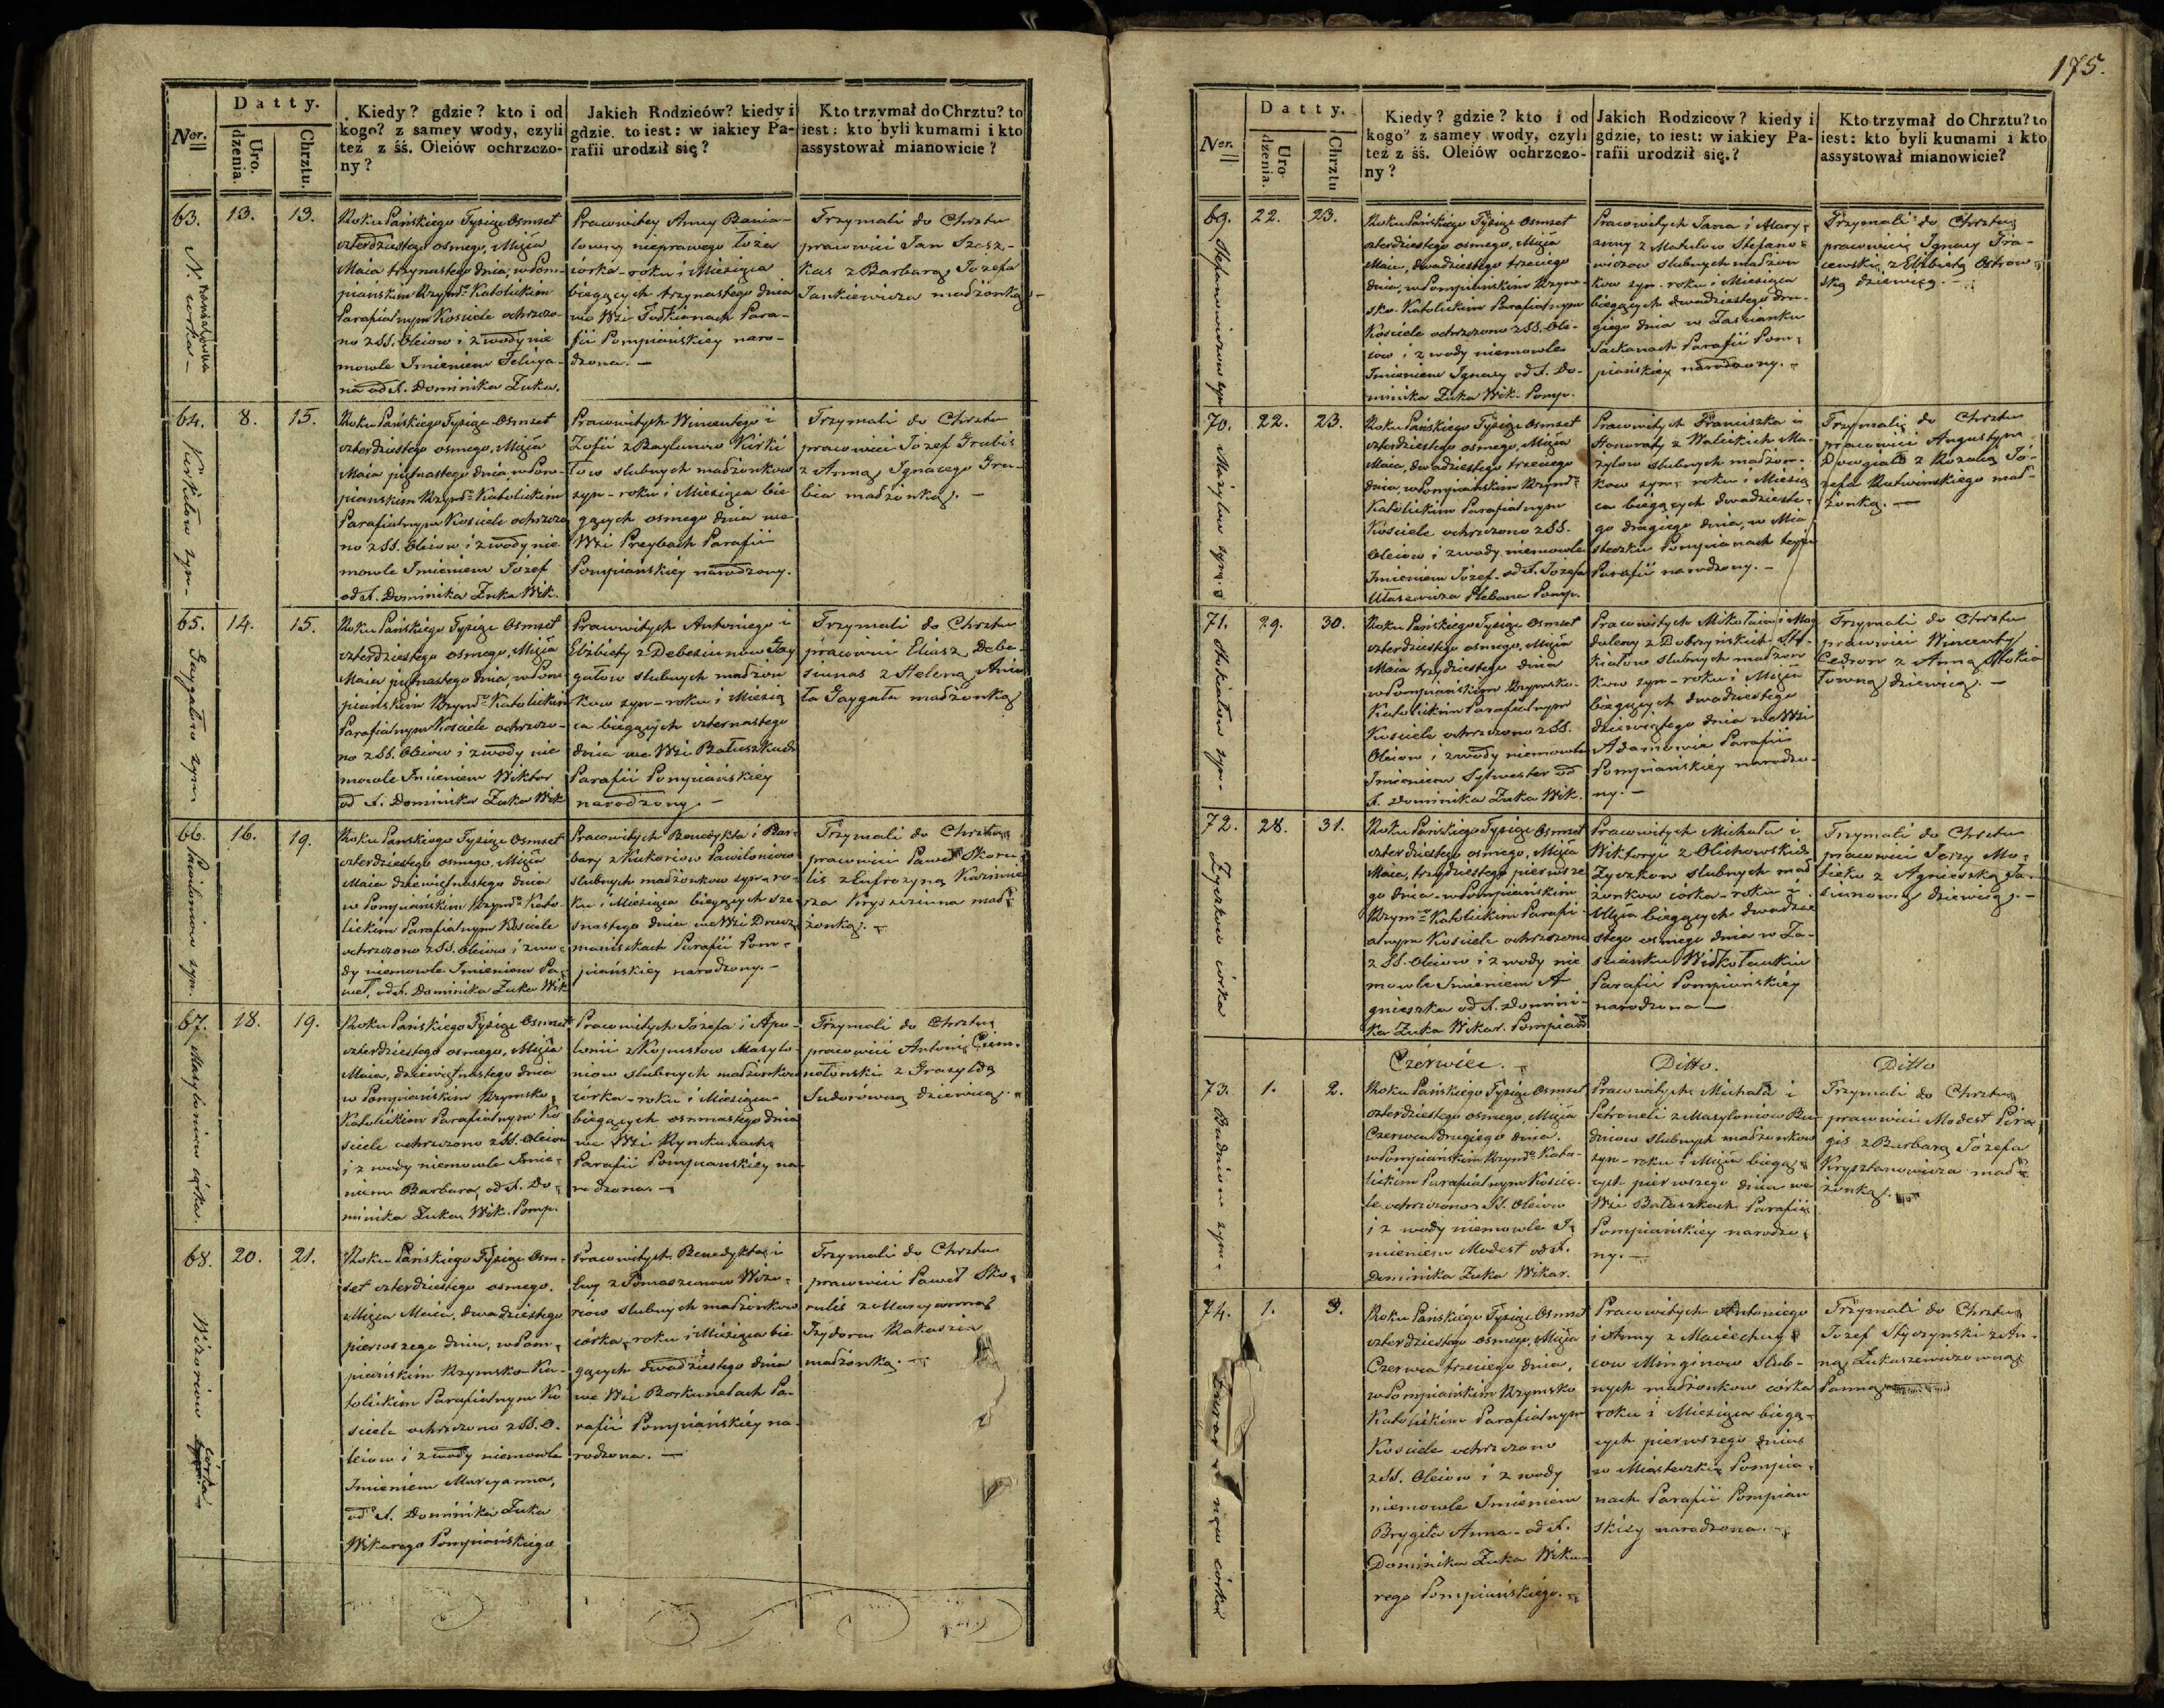 175.
Datty.
Ner.
Uro.
dzenia.
Chrztu.
Kiedy? gdzie? kto i od
kogo? z samey wody, czyli
też z śś. Oleiów ochrzczo-
ny?
Jakich Rodziców? kiedy i
gdzie. to iest: w iakiey Pa-
rafii urodził się?
Kto trzymał do Chrztu? to
iest: kto byli kumami i kto
assystował mianowicie?
63.
13.
13.
Roku Pańskiego Tysiąc Osmset
czterdziestego osmego, Msca
Maia trzynastego dnia, w Pom-
piańskim Rzym: Katolickim
Parafialnym Kosciele ochrzczo-
no z SS. Oleiow i z wody nie
mowle Imieniem Felicya-
na od X. Dominika Zuka.
Pracowitey Anny
nieprawego łoża
córka - roku i Miesiąca
biegących trzynastego dnia
we Wsi Para-
fii Pompiańskiey naro-
dzona. -
Trzymali do Chrztu
pracowici Jan
z Barbarą Józefa
Jankiewicza małżonką
64.
8.
15.
Kirkiłow syn -
Roku Pańskiego Tysiąc Osmset
czterdziestego osmego, Msca
Maia piętnastego dnia, w Pom-
piańskim Rzym: Katolickim
Parafialnym Kosciele ochrzczo
no z SS. Oleiow i z wody nie
mowle Imieniem Józef
od X. Dominika Zuka Wik.
Pracowitych Wincentego i
Zofii z Kirki
łow slubnych małżonkow
syn - roku i Miesiąca bie
gących osmego dnia we
Wsi Parafii
Pompiańskiey narodzony.
Trzymali do Chrztu
pracowici Józef Grubis
z Anną Ignacego Gru-
bia małżonką. -
65.
14.
15.
Gaygałow syn
Roku Pańskiego Tysiąc Osmset
czterdziestego osmego, Msca
Maia piętnastego dnia, w Pom
piańskim Rzym: Katolickim
Parafialnym Kosciele ochrzczo-
no z SS. Oleiow i z wody nie
mowle Imieniem Wiktor
od X. Dominika Zuka Wik
Pracowitych Antoniego i
Elżbiety z Debesiunow Gay
gałow slubnych małżon
kow syn - roku i Miesią
ca biegących czternastego
dnia we Wsi Bałuszkach
Parafii Pompiańskiey
narodzony. -
Trzymali do Chrztu
pracowici Eliasz Debe-
siunas z Heleną
Gaygała małżonką
66.
16.
19.
Pawiloniow syn.
Roku Pańskiego Tysiąc Osmset
czterdziestego osmego, Msca
Maia dziewiętnastego dnia
w Pompiańskim Rzym: Kato-
lickim Parafialnym Kosciele
ochrzczono z SS. Oleiow i z wo-
dy niemowle Imieniem Pa-
weł, od X. Dominika Zuka Wik
Pracowitych Benedykta i Bar-
bary z Kukoriow Pawiloniow
slubnych małżonkow syn - ro-
ku i Miesiąca biegących sze-
snastego dnia we Wsi
Parafii Pom-
piańskiey narodzony. -
Trzymali do Chrztu
pracowici Paweł Skoru-
lis z Eufrozyną Kazimie
rza mał-
żonką. -
67.
18.
19.
Masyloniow córka.
Roku Pańskiego Tysiąc Osmset
czterdziestego osmego, Msca
Maia, dziewiętnastego dnia
w Pompiańskim Rzymsko
Katolickim Parafialnym Ko
sciele ochrzczono z SS. Oleiow
i z wody niemowle Imie-
niem Barbara, od X. Do-
minika Zuka Wik. Pomp.
Pracowitych Józefa i Apo-
lonii z Kopustow Masylo-
niow slubnych małżonkow
córka - roku i Miesiąca
biegących osmnastego dnia
we Wsi Rymkunach
Parafii Pompiańskiey na-
rodzona. -
Trzymali do Chrztu
pracowici Antoni Ciem-
nołoński z Grazyldą
Sudorówną dziewicą. -
68.
20.
21.
Wizoriow córka -
Roku Pańskiego Tysiąc Osm-
set czterdziestego osmego.
Msca Maia, dwadziestego
pierwszego dnia, w Pom-
piańskim Rzymsko-Ka-
tolickim Parafialnym Ko
sciele ochrzczono z SS. O-
leiow i z wody niemowle
Imieniem Maryanna,
od X. Dominika Zuka
Wikarego Pompiańskiego
Pracowitych Benedykta i
Ewy z Tomaszunow Wizo-
riow slubnych małżonkow
córka, roku i Miesiąca bie
gących dwadziestego dnia
we Wsi Borkunelach Pa-
rafii Pompiańskiey na-
rodzona. -
Trzymali do Chrztu
pracowici Paweł Sko-
rulis z Maryanną
Izydora Rakaszia
małżonką. -
Datty.
Ner.
Uro-
dzenia.
Chrztu
Kiedy? gdzie? kto i od
kogo? z samey wody, czyli
też z śś. Oleiów ochrzczo-
ny?
Jakich Rodzicow? kiedy i
gdzie, to iest: w iakiey Pa-
rafii urodził się.?
Kto trzymał do Chrztu? to
iest: kto byli kumami i kto
assystował mianowicie?
69.
22.
23.
Stefanowiczow syn
Roku Pańskiego Tysiąc Osmset
czterdziestego osmego, Msca
Maia, dwadziestego trzeciego
dnia, w Pompiańskim Rzym-
sko-Katolickim Parafialnym
Kosciele ochrzczono z SS. Ole-
iow i z wody niemowle
Imieniem Ignacy od X. Do-
minika Zuka Wik. Pomp.
Pracowitych Jana i Mary-
anny z Matulow Stefano-
wiczow slubnych małżon
kow syn - roku i Miesiąca
biegących dwadziestego dru-
giego dnia w Zascianku
Parafii Pom-
piańskiey narodzony. -
Trzymali do Chrztu
pracowici Ignacy
z Elżbietą Ostrow-
ską dziewicą. -
70.
22.
23.
Mażylow syn
Roku Pańskiego Tysiąc Osmset
czterdziestego osmego, Msca
Maia, dwadziestego trzeciego
dnia, w Pompiańskim Rzym:
Katolickim Parafialnym
Kosciele ochrzczono z SS.
Oleiow i z wody niemowle
Imieniem Józef - od X. Jozefa
Plebana Pomp.
Pracowitych Franciszka i
Honoraty z Walickich Ma-
żylow slubnych małżon-
kow syn - roku i Miesią
ca biegących dwadzieste-
go drugiego dnia, w Mia
steczku Pompianach teyże
Parafii narodzony. -
Trzymali do Chrztu
pracowici Augustyn
Dowgiało z Rozalią Jó-
zefa Rutwinskiego mał-
żonką. -
71.
29.
30.
Roku Pańskiego Tysiąc Osmset
czterdziestego osmego, Msca
Maia trzydziestego dnia
w Pompiańskim Rzymsko-
Katolickim Parafialnym
Kosciele ochrzczono z SS.
Oleiow i z wody niemowle
Imieniem Sylwester od
X. Dominika Zuka Wik.
Pracowitych Mikołaia i Mag
daleny z Dobrzyńskich
slubnych małżon
kow syn - roku i Msca
biegących dwadziestego
dziewiątego dnia we Wsi
Adamowie Parafii
Pompiańskiey narodzo-
ny. -
Trzymali do Chrztu
pracowici Wincenty
Cedron z Anną
dziewicą. -
72.
28.
31.
Zyczkow córka
Roku Pańskiego Tysiąc Osmset
czterdziestego osmego, Msca
Maia, trzydziestego pierwsze
go dnia - w Pompiańskim
Rzym: Katolickim Parafi-
alnym Kosciele ochrzczono
z SS. Oleiow i z wody nie
mowle Imieniem A
gnieszka od X. Domini-
ka Zuka Wikar. Pompiań
Pracowitych Michała i
Wiktoryi z Olichowskich
Zyczkow slubnych mał
żonkow córka - roku i
Msca biegących dwadzie
stego osmego dnia w Za-
scianku
Parafii Pompiańskiey
narodzona -
Trzymali do Chrztu
pracowici Jerzy Mo-
tieka z Agnieszką
dziewicą. -
Czerwiec.
Ditto.
Ditto
73.
1.
2.
Budriow syn -
Roku Pańskiego Tysiąc Osmset
czterdziestego osmego, Msca
Czerwca drugiego dnia,
w Pompiańskim Rzym: Kato-
lickim Parafialnym Koscie-
le ochrzczono z SS. Oleiow
i z wody niemowle I-
mieniem Modest od X.
Dominika Zuka Wikar.
Pracowitych Michała i
Petroneli z Masylonow Bu-
driow slubnych małżonkow
syn - roku i Msca biegą-
cych pierwszego dnia we
Wsi Bałuszkach Parafii
Pompiańskiey narodzo-
ny. -
Trzymali do Chrztu
pracowici Modest Pira
gis z Barbarą Józefa
Krysztanowicza mał-
żonką.
74.
1.
3.
Roku Pańskiego Tysiąc Osmset
czterdziestego osmego, Msca
Czerwca trzeciego dnia,
w Pompiańskim Rzymsko
Katolickim Parafialnym
Kosciele ochrzczono
z SS. Oleiow i z wody
niemowle Imieniem
Brygita Anna - od X.
Dominika Zuka Wika-
rego Pompiańskiego. -
Pracowitych Antoniego
i Anny z
Minginow slub-
nych małżonkow córka
roku i Miesiąca biegą-
cych pierwszego dnia
w Miasteczku Pompia-
nach Parafii Pompian
skiey narodzona. -
Trzymali do Chrztu
Jozef Styczynski z An-
ną Łukaszewiczowną
Panną